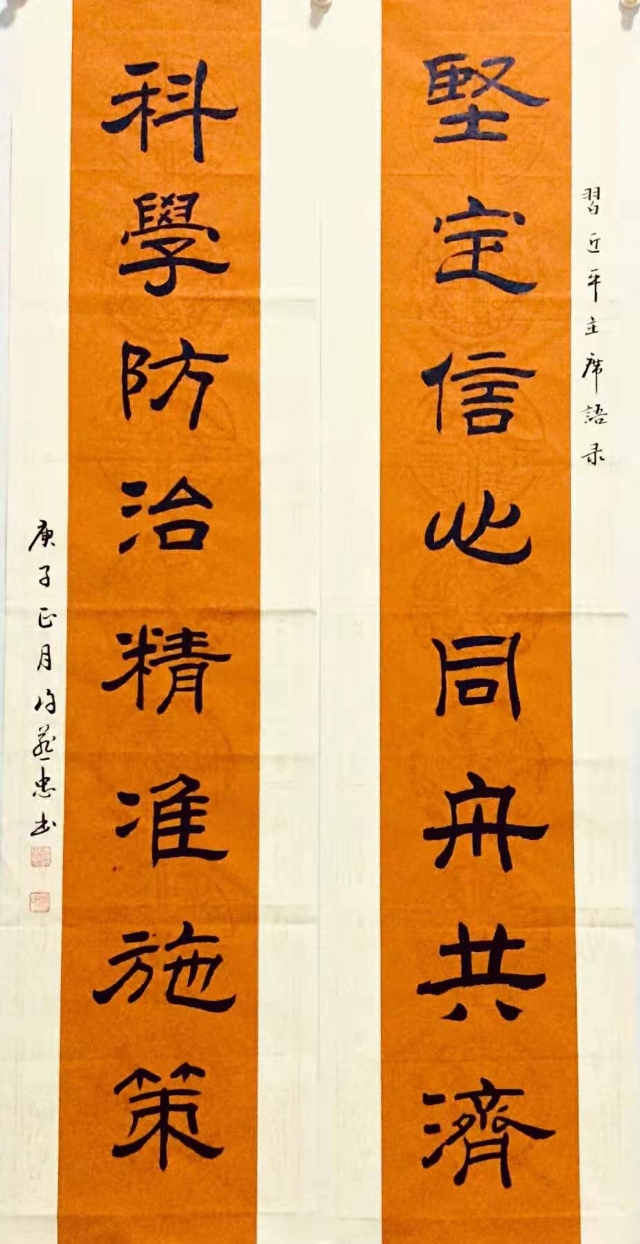 習近平主席語录
堅定信心同舟共濟
科學防治精准施策
庚子正月 忠书